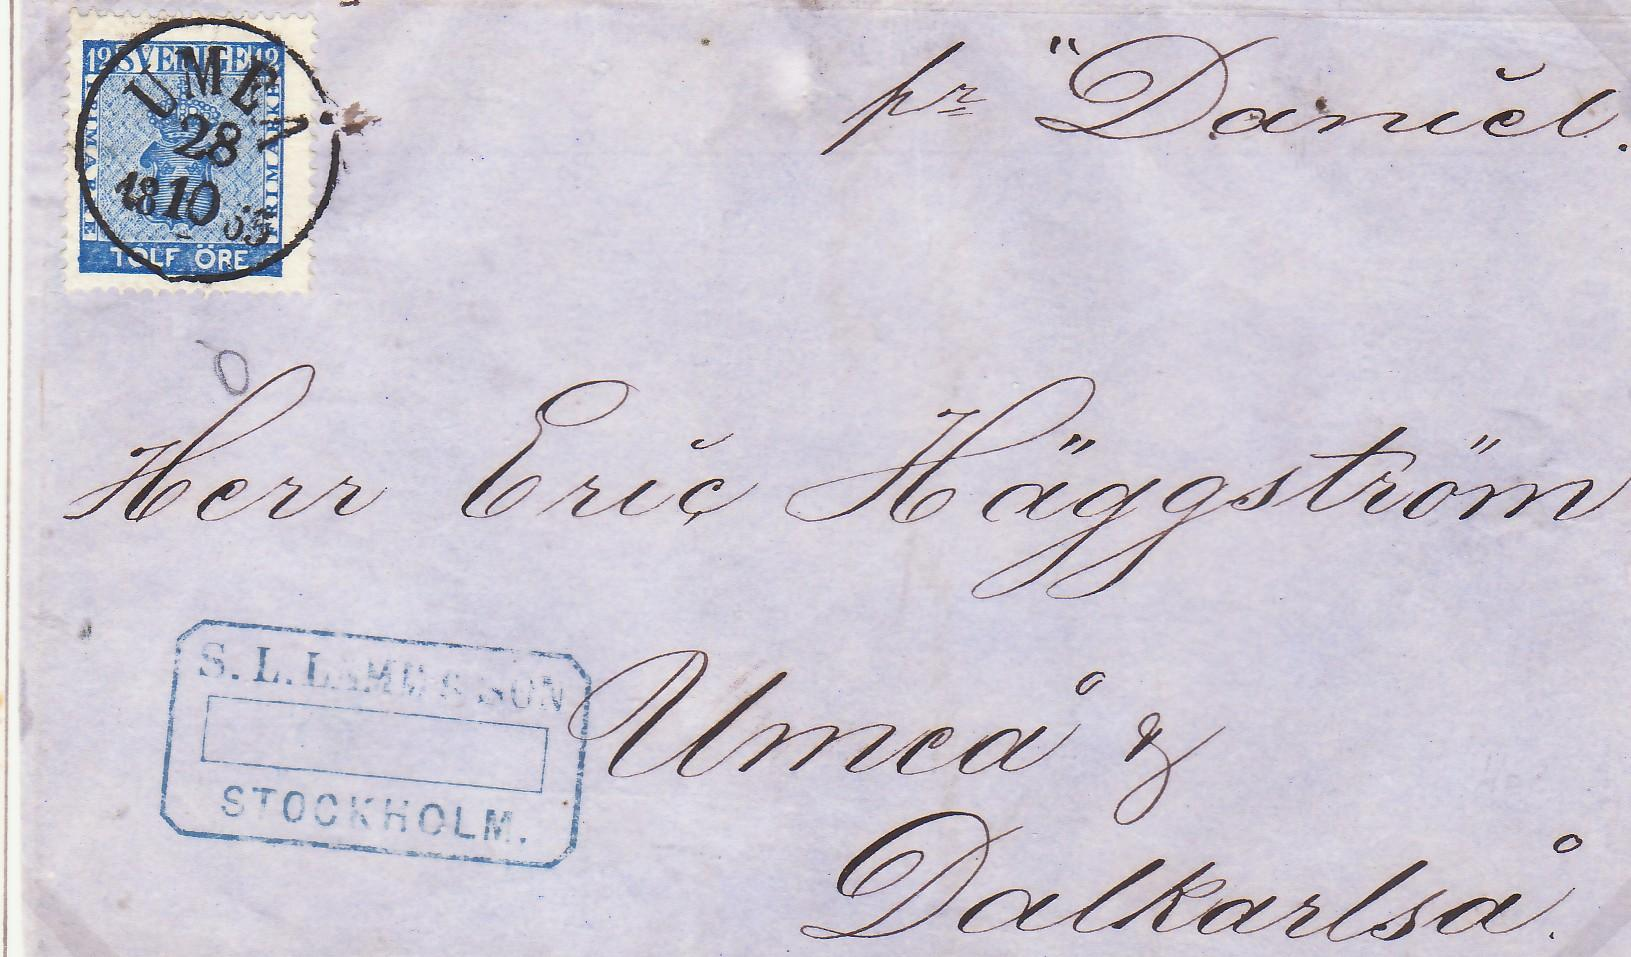 12 SVERIGE 12
FRIMÄRKE
FRIMARKE
TOLF ÖRE
UMEÅ
28
18 10 65
pr "Daniel.
Herr Eric Häggström
Umeå &
Dalkarlså.
S. L. SON
STOCKHOLM.